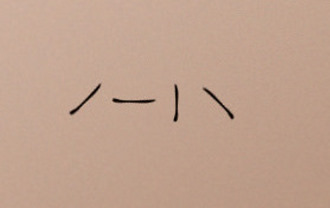 / — | \